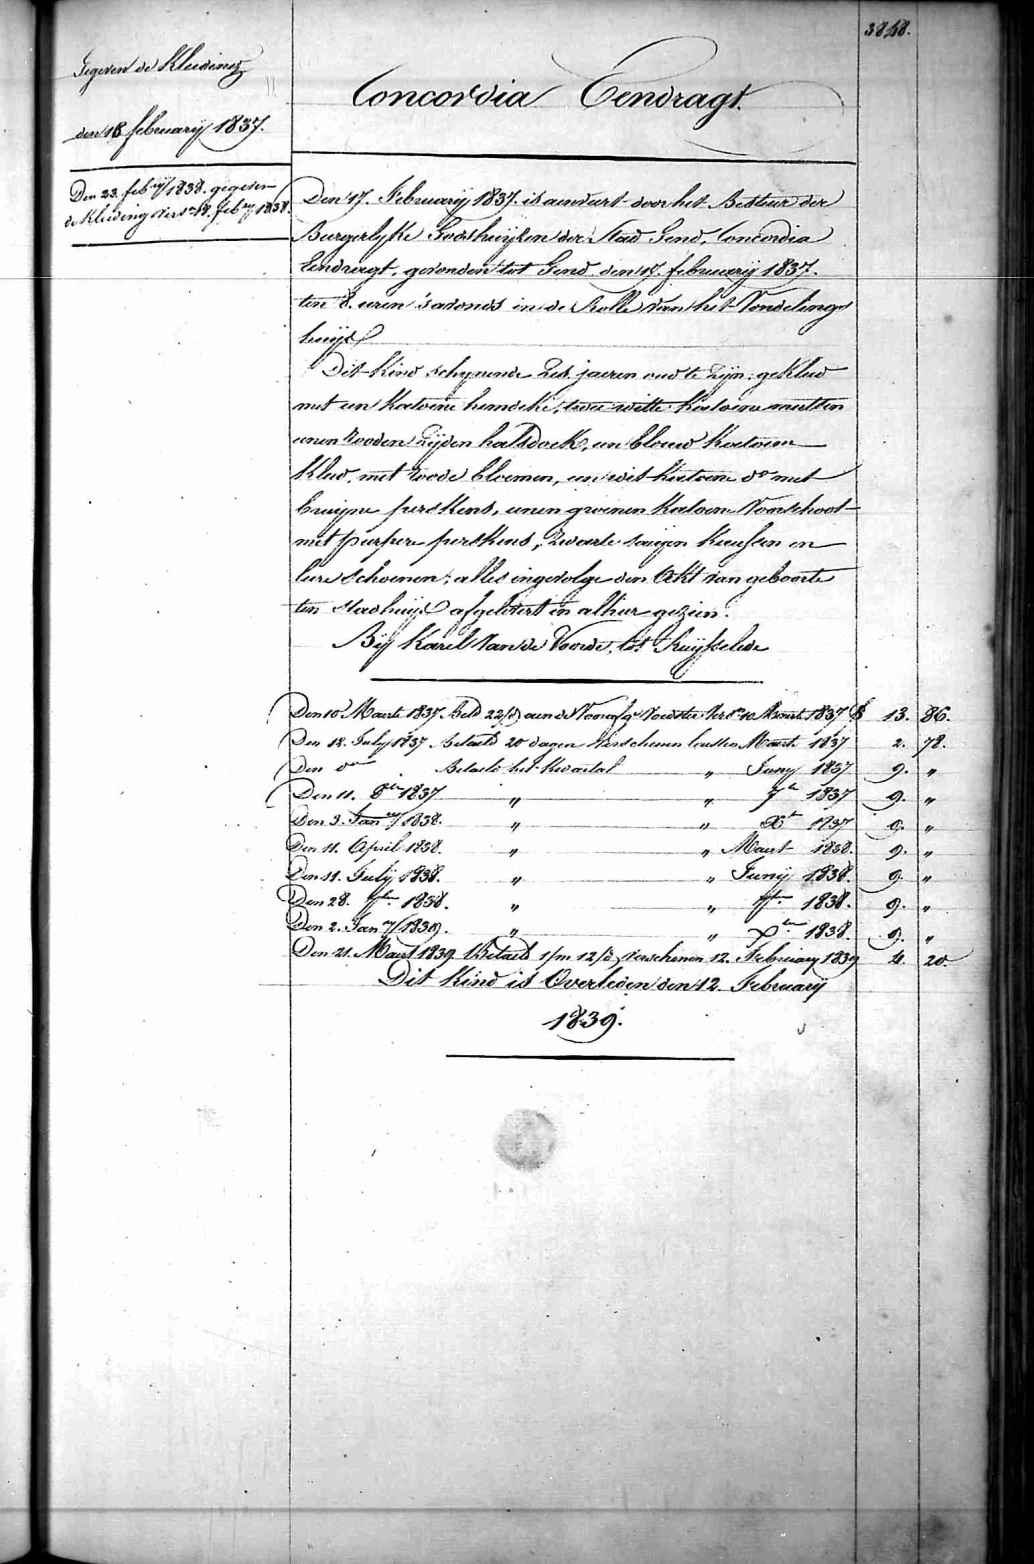 3848.
Gegeven de Kleeding
den 18 february 1837.
Den 23. feb.ry 1838. gegeven
de Kleeding vers.n 18. feb.ry 1838.
Concordia Eendragt.
Den 17. February 1837. is aenveert door het Bestuur der
Burgerlyke Godshuijzen der Stad Gend, Concordia
Eendragt, gevonden tot Gend den 17. february 1837.
ten 8. uren 's avonds in de Rolle van het Vondeling
huijs
Dit Kind schynende zes jaeren oud te zijn; gekleed
met een Katoene hemdeke, twee witte Katoene mutsen
eenen rooden zijden halsdoek, een blauw Katoene
Kleed, met roode bloemen, een wit Katoene do met
bruijne perskens, eenen groenen Katoene Voorschoot
met purpere perskens, zwarte saijen Kaussen en
lere schoenen; alles ingevolge den Akt van geboorte
ten stadhuijse afgelevert en alhier gezien.
Bij Karel Van de Voorde, tot Ruijsselede
Den 10 Maerte 1837. Beld 22/d aen de Voorafg. Voedster Vers.n 10 Maert 1837 13. 86.
Den 18. July 1837 betaeld 20 dagen Verschenen lesten Maerte 1837 2. 78.
Den do Betaeld het Kwartael " Juny 1837 9. "
Den 11. 8bre 1837 " " 7bre 1837 9. "
Den 3. Janry 1838. " " Xbre 1837 9. "
Den 11. April 1838. " " Maert 1838. 9. "
Den 11. July 1838. " " Junij 1838. 9. "
Den 28. 7bre 1838. " " 7bre 1838. 9. "
Den 2. Janry 1839. " " Xbre 1838. 9. "
Den 21. Maert 1839 Betaeld 1/m 12/d Verschenen 12. February 1839 4. 20.
Dit Kind is Overleden den 12. February
1839.